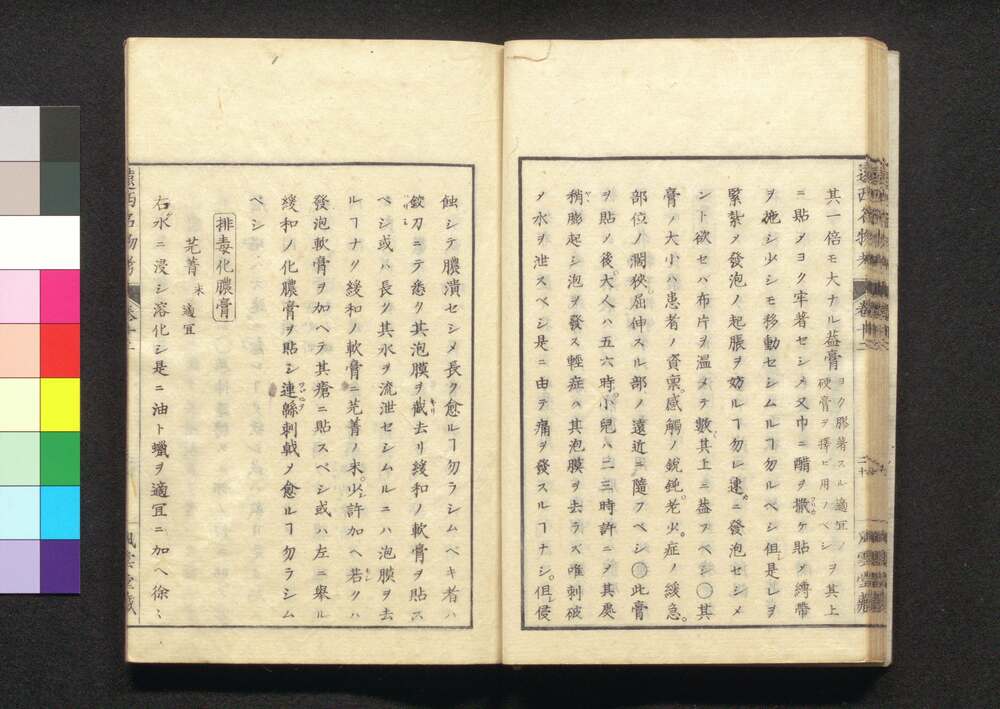 其一倍モ大ナル葢膏ヨク膠著スル適宜ノ硬膏ヲ擇ヒ用フベシヲ其上
ニ貼〆ヨク牢著セシメ又巾ニ醋ヲ撒ケ貼〆縛帶
ヲ施シ少シモ移動セシムルヿ勿ルベシ但是レヲ
緊紮〆發泡ノ起脹ヲ妨ルヿ勿レ速ニ發泡セシメ
ント欲セバ布片ヲ温メテ數其上ニ葢フベシ〇其
膏ノ大小ハ患者ノ資稟感觸ノ鋭鈍老少症ノ緩急
部位ノ濶狹屈伸スル部ノ遠近ニ隨フベシ〇此膏
ヲ貼ノ後大人ハ五六時小兒ハ二三時許ニ〆其處
稍膨起シ泡ヲ發ス輕症ハ其泡膜ヲ去ラズ唯刺破
〆水ヲ泄スベシ是ニ由テ痛ヲ發スルヿナシ但侵
蝕シテ膿潰セシメ長ク愈ルヿ勿ラシムベキ者ハ
鉸刀ニテ悉ク其泡膜ヲ截去リ緩和ノ軟膏ヲ貼ス
ベシ或ハ長ク其水ヲ流泄セシムルニハ泡膜ヲ去
ルヿナク緩和ノ軟膏ニ芫菁ノ末少許加ヘ若クハ
發泡軟膏ヲ加ヘテ其瘡ニ貼スベシ或ハ左ニ擧ル
緩和ノ化膿膏ヲ貼シ連綿刺戟〆愈ルヿ勿ラシム
ベシ
排毒化膿膏
芫菁 末 適宜
右水ニ浸シ溶化シ是ニ油ト蠟ヲ適宜ニ加ヘ徐々